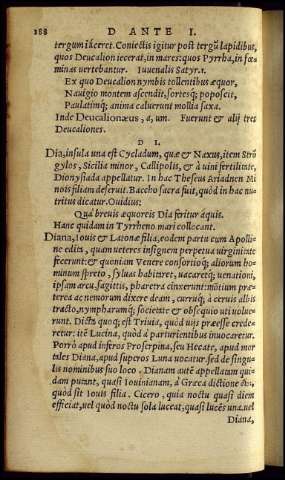 188 D ANTE I.
tergum iaceret. Coniectis igitur post tergũ lapidibus,
quos Deucalion iecerat, in mares: quos Pyrrha, in fœ
minas vertebantur. Iuuenalis Satyr. 1.
Ex quo Deucalion nymbis tollentibus æquor,
Nauigio montem ascendit, sortesq; poposcit,
Paulatimq; anima caluerunt mollia saxa.
Inde Deucalionæus, a, um. Fuerunt & alij tres
Deucaliones.
D I.
Dia, insula una est Cycladum, quæ & Naxus, item Strõ
gylos, Sicilia minor, Callipolis, & à uini fertilitate,
Dionysiada appellatur. In hac Theseus Ariadnen Mi
nois filiam deseruit. Baccho sacra fuit, quòd in hac nu
tritus dicatur. Ouidius:
Quà breuis æquoreis Dia feritur aquis.
Hanc quidam in Tyrrheno mari collocant.
Diana, Iouis & Latonæ filia, eodem partu cum Apolli-
ne edita, quam ueteres insignem perpetua uirginitate
fecerunt: & quoniam Veneris consortioq; aliorum ho
minum spreto, syluas habitaret, uacaretq; uenationi,
ipsam arcu, sagittis, pharetra cinxerunt: mõtium præ-
terea ac nemorum dixere deam, curruq; à ceruis albis
tracto, nympharumq; societate & obsequio uti uolue
runt. Dicta quoq; est Triuia, quòd uijs præesse crede-
retur: itẽ Lucina, quòd à parturientibus inuocaretur.
Porrò apud inferos Proserpina, seu Hecate, apud mor
tales Diana, apud superos Luna uocatur. sed de singu-
lis nominibus suo loco. Dianam autẽ appellatam qui-
dam putant, quasi Iouinianam, à Græca dictione
quòd sit Iouis filia. Cicero, quia noctu quasi diem
efficiat, uel quòd noctu sola luceat, quasi lucẽs una. uel
Diana,